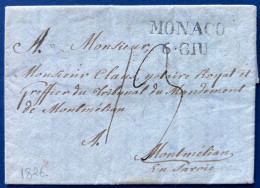 MONACO
6·GIU
A. Monsieur
Monsieur Claux notaire Royal et
Greffier du Tribunal du Mandement
de Montmélian
A.
Montmélian
En Savoie
1826